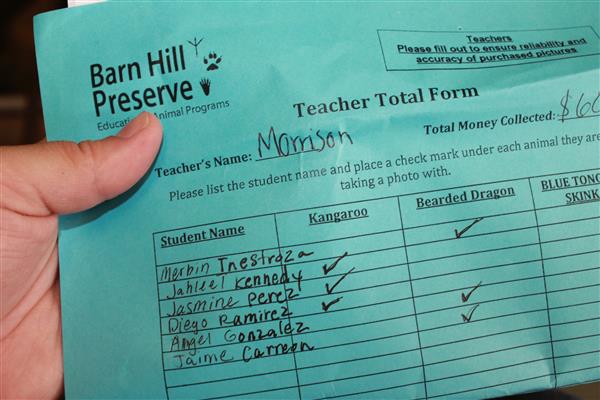 Barn Hill
Preserve
Educational Animal Programs
Teachers
Please fill out to ensure reliability and
accuracy of purchased pictures
Teacher Total Form
Teacher's Name: Morrison
Total Money Collected: $60
Please list the student name and place a check mark under each animal they are
taking a photo with.
Student Name Kangaroo Bearded Dragon BLUE TONG
SKINK
Merbin Inestroza ✓
Jahleel Kennedy ✓
Jasmine Perez ✓
Diego Ramirez ✓ ✓
Angel Gonzalez ✓
Jaime Carreon